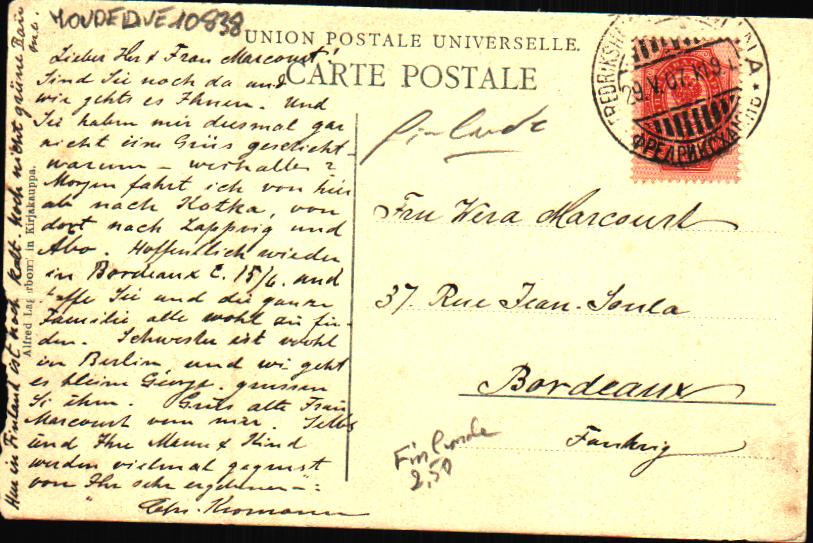 MONDEDIVE10838
UNION POSTALE UNIVERSELLE.
CARTE POSTALE
Lieber Her & Frau Marcourt!
Sind Sie noch da und
wie gehts es Ihnen. Und
Sie haben mir diesmal gar
nicht eine Grüs geschickt
warum – weshalber?
Morgen fahrt ich von hier
ab nach Kotka, von
dort nach Lappvig und
Abo. Hoffentlich wieder
in Bordeaux C. 15/6. und
hoffe Sie und die ganze
Familie alle wohl zu fin-
den. Schwester ist wohl
in Berlin und wi geht
es kleine George. grussen
Si ihm. Grüs alte Frau
Marcourt von mir. Selbs
und Ihre Mann & Kind
werden vielmal gegrusst
von Ihr sehr ergebenen:
Chr. Kromann
Hier in Finland ist noch Kalt. Noch nicht grüne Bäu
me.
Alfred Lagerbom in Kirjakauppa.
Finlande
FREDRIKSHAMN
29.V.07
ФРЕДРИКСХАМНЪ
Frau Wera Marcourt
37. Rue Jean-Soula
Bordeaux
Fankrig
Finlande
2,50